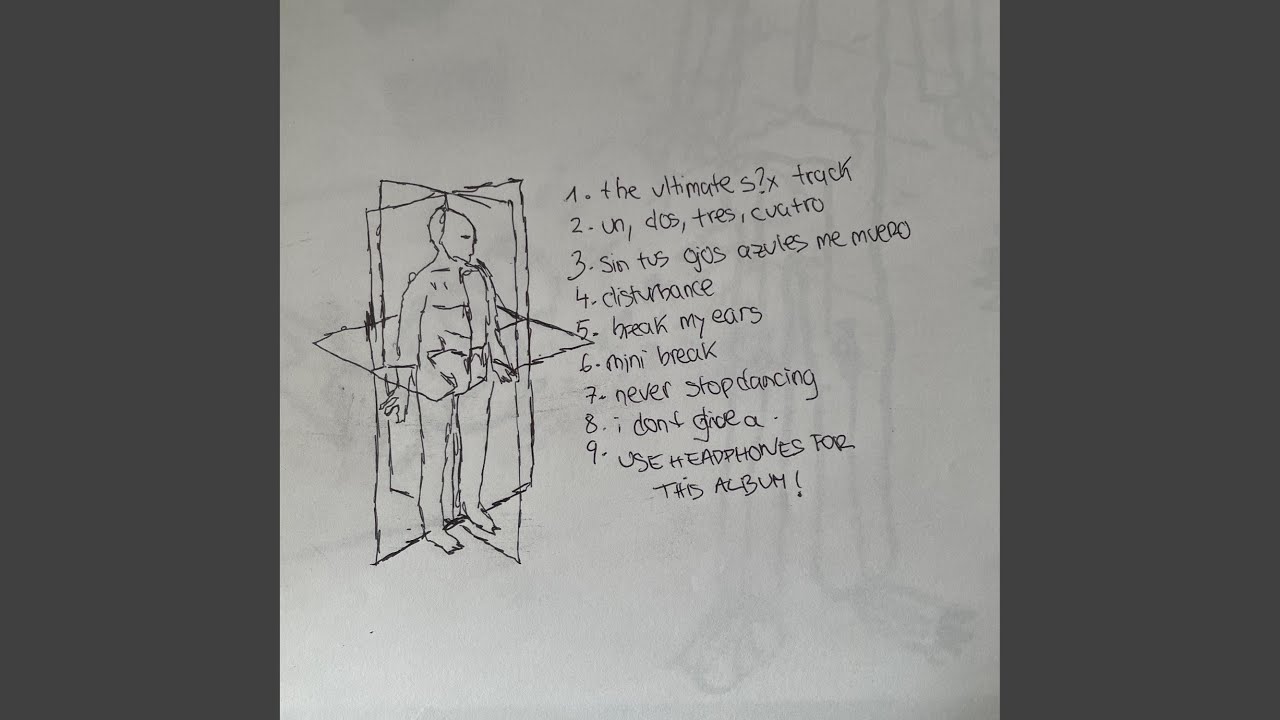 1. the ultimate s?x track
2. un, dos, tres, cuatro
3. sin tus ojos azules me muero
4. disturbance
5. break my ears
6. mini break
7. never stop dancing
8. i dont give a
9. USE HEADPHONES FOR
THIS ALBUM!